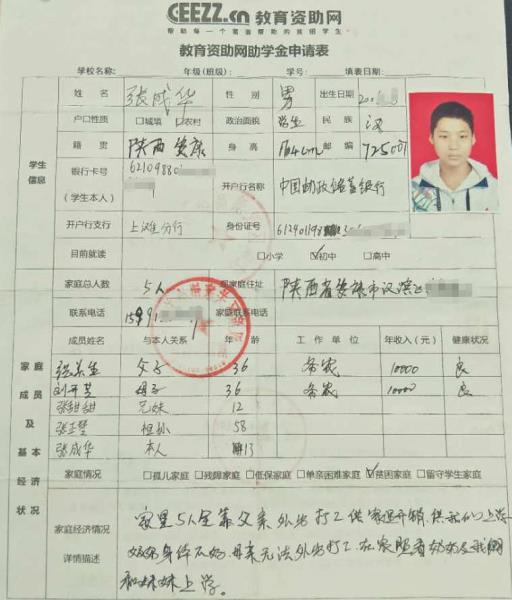 CEEZZ.cn 教育资助网
帮助每一个需要帮助的贫困学生
教育资助网助学金申请表
学校名称: 年级(班级): 学号: 填表日期:
姓名 张成华 性别 男 出生日期 20
户口性质 □城填 □农村 政治面貌 学生 民族 汉
籍贯 陕西安康 身高 164cm 邮编 725007
学生信息
银行卡号(学生本人) 62109880 开户行名称 中国邮政储蓄银行
开户行支行 上滩分行 身份证号
目前就读 □小学 ☑初中 □高中
家庭总人数 5人 现家庭住址 陕西省安康市汉滨区
联系电话 家庭联系电话
成员姓名 与本人关系 年龄 工作单位 年收入(元) 健康状况
父子 36 务农 10000 良
母子 36 务农 10000 良
张甜甜 兄妹 12
祖孙 58
张成华 本人 13
家庭成员及基本经济状况
家庭情况 □孤儿家庭 □残障家庭 □低保家庭 □单亲困难家庭 ☑贫困家庭 □留守学生家庭
家庭经济情况详情描述
家里5人全靠父亲外出打工供家里开销,供我们上学
奶奶身体不好,母亲无法外出打工,在家照看奶奶及我
和妹妹上学。